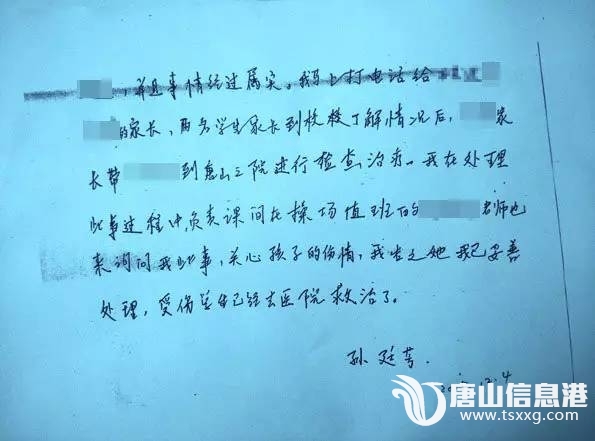 ,并且事情经过属实。我马上打电话给
的家长,两名学生家长到校了解情况后,家
长带到唐山三院进行检查治疗。我在处理
此事过程中,负责课间在操场值班的老师也
来询问我此事,关心孩子的伤情,我告之她我已妥善
处理,受伤学生已经去医院救治了。
孙廷
12.4
唐山信息港
www.tsxxg.com